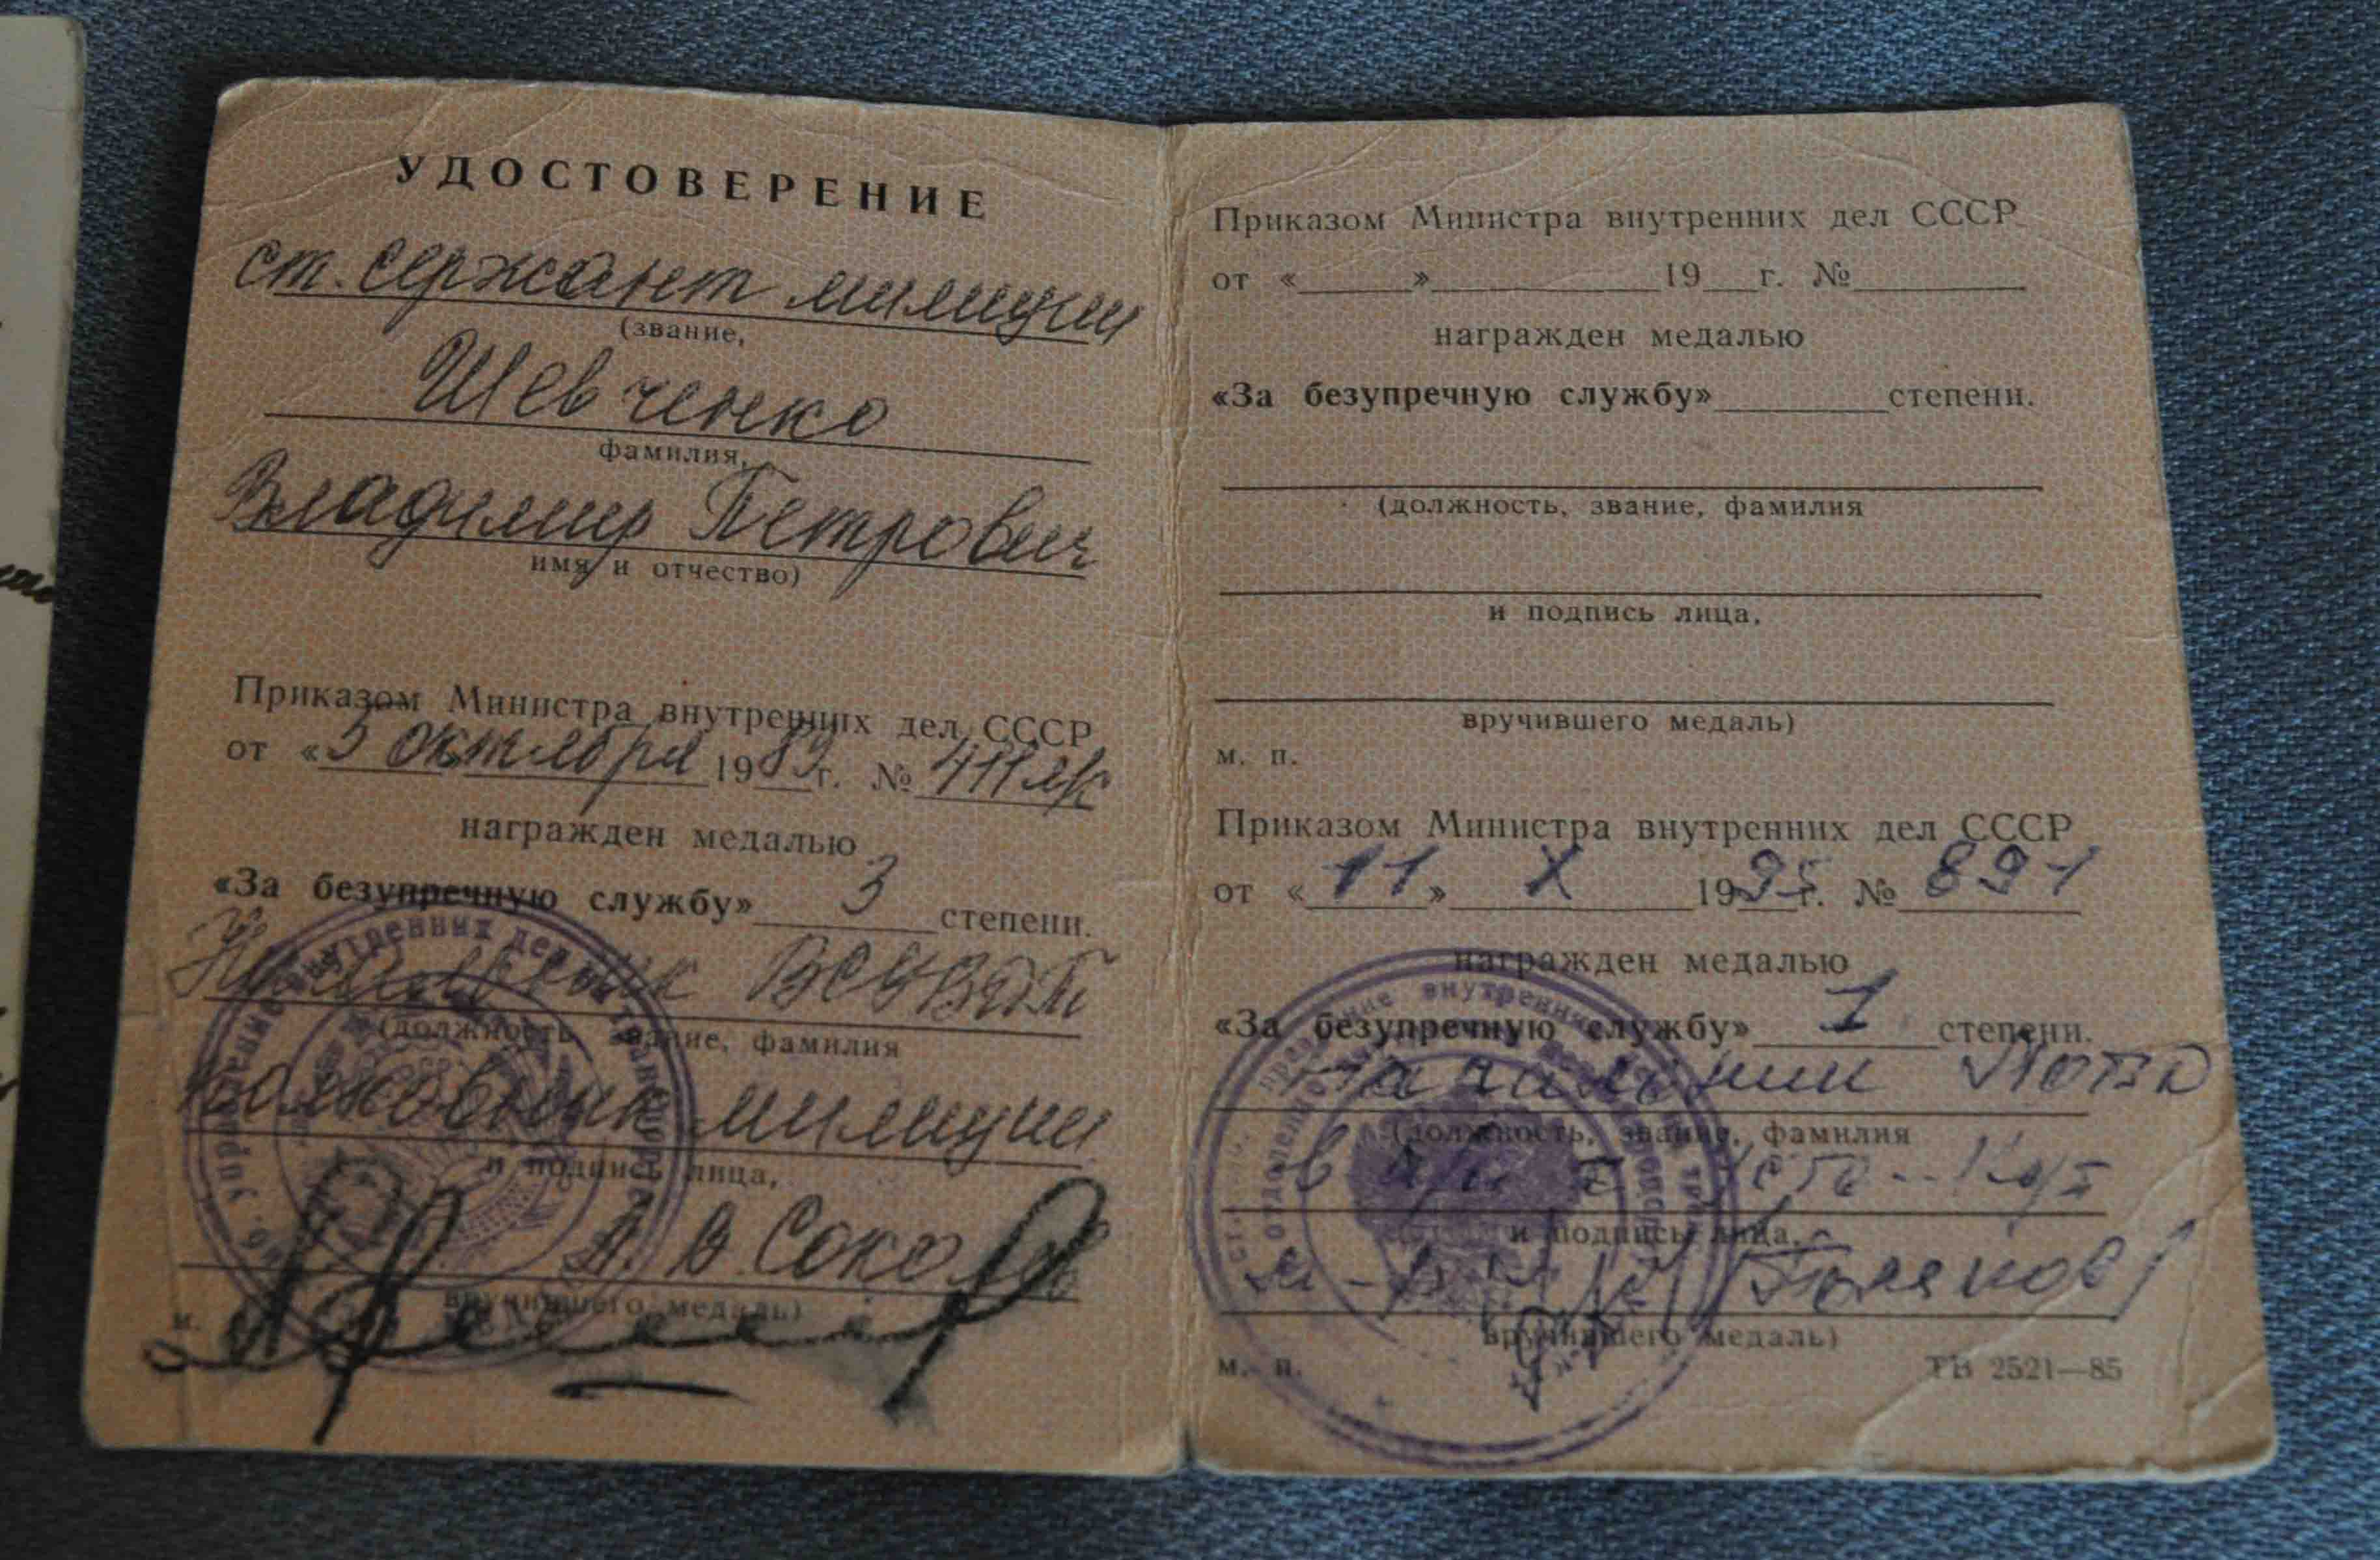 УДОСТОВЕРЕНИЕ
ст. сержант милиции
(звание,
Шевченко
фамилия,
Владимир Петрович
имя и отчество)
Приказом Министра внутренних дел СССР
от «5 октября 1989 г. № 411 лк
награжден медалью
«За безупречную службу» 3 степени.
Начальник ВСУВДТ
(должность, звание, фамилия
полковник милиции
и подпись лица,
А. В Соколов
вручившего медаль)
м.
Приказом Министра внутренних дел СССР
от « » 19 г. №
награжден медалью
«За безупречную службу» степени.
(должность, звание, фамилия
и подпись лица,
вручившего медаль)
м. п.
Приказом Министра внутренних дел СССР
от «11» X 1995 г. № 891
награжден медалью
«За безупречную службу» 1 степени.
Начальник ЛОВД
(должность, звание, фамилия
и подпись лица,
вручившего медаль)
м. п.
ТВ 2521—85